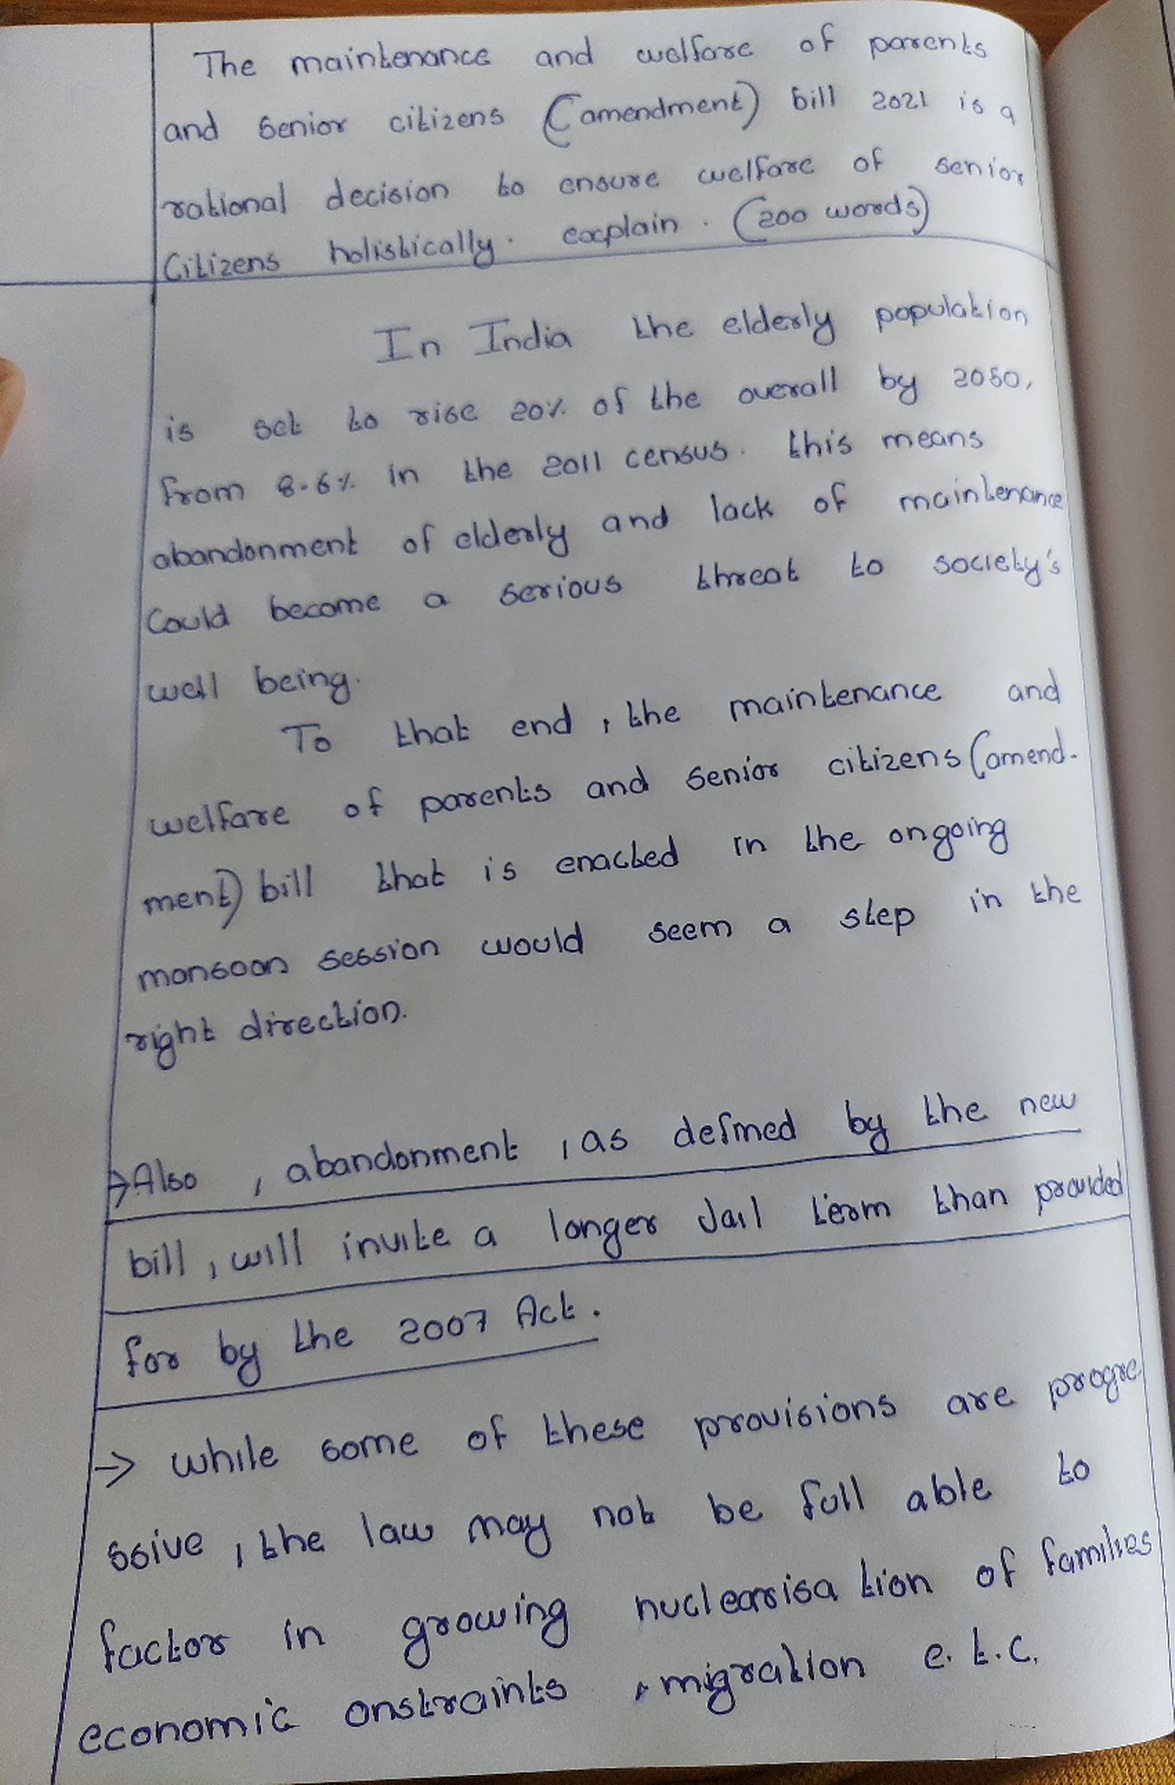 The maintenance and welfare of parents
and senior citizens (amendment) bill 2021 is a
rational decision to ensure welfare of senior
Citizens holistically. explain. (200 words)
In India the elderly population
is set to rise 20% of the overall by 2050,
from 8.6% in the 2011 census. this means
abandonment of elderly and lack of maintenance
Could become a serious threat to society's
well being.
To that end, the maintenance and
welfare of parents and senior citizens (amend-
ment) bill that is enacted in the ongoing
monsoon session would seem a step in the
right direction.
→Also, abandonment, as defined by the new
bill, will invite a longer Jail term than provided
for by the 2007 Act.
→ while some of these provisions are progre
ssive, the law may not be full able to
factor in growing nuclearisation of families
economic onstraints, migration e.t.c.